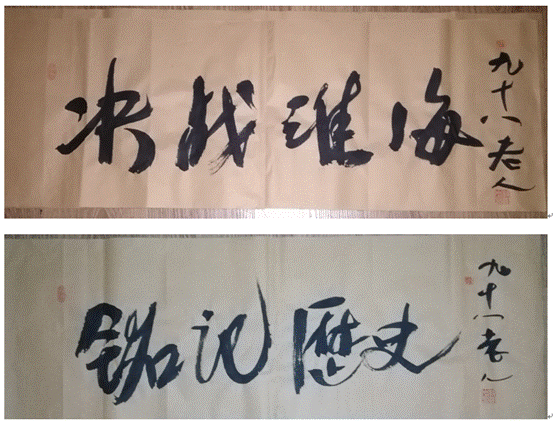 决战淮海
九十八老人
铭记歷史
九十八老人